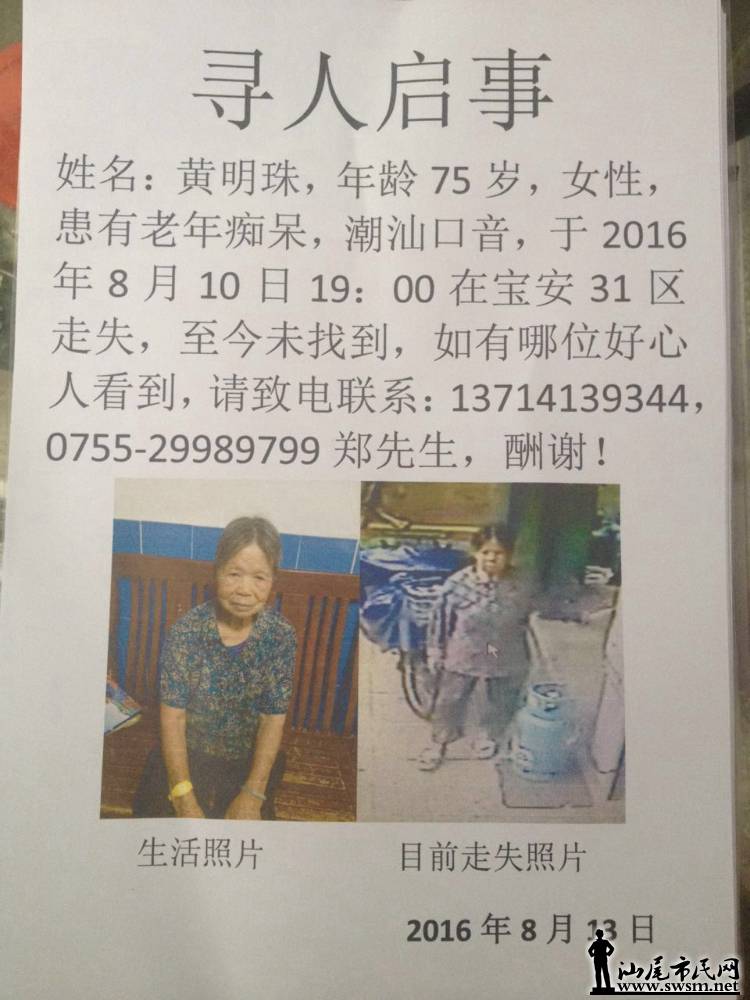 寻人启事
姓名：黄明珠，年龄 75 岁，女性，
患有老年痴呆，潮汕口音，于 2016
年 8 月 10 日 19：00 在宝安 31 区
走失，至今未找到，如有哪位好心
人看到，请致电联系：13714139344，
0755-29989799 郑先生，酬谢！
生活照片
目前走失照片
2016 年 8 月 13 日
汕尾市民网
www.swsm.net